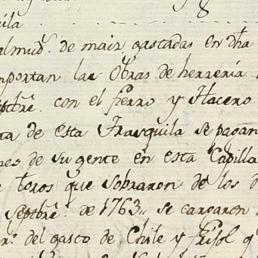 uila 8
almuds. de maiz gastadas en dha
mportan las Obras de herreria
eptbre. con el fierro y Hacero
ta de esta Frasquila se pagan
nes de Su gente en esta Capilla
e toros que sobraron de los d
Septbre. de 1763,, se cargaron
rs. del gasto de Chile y Frisol q